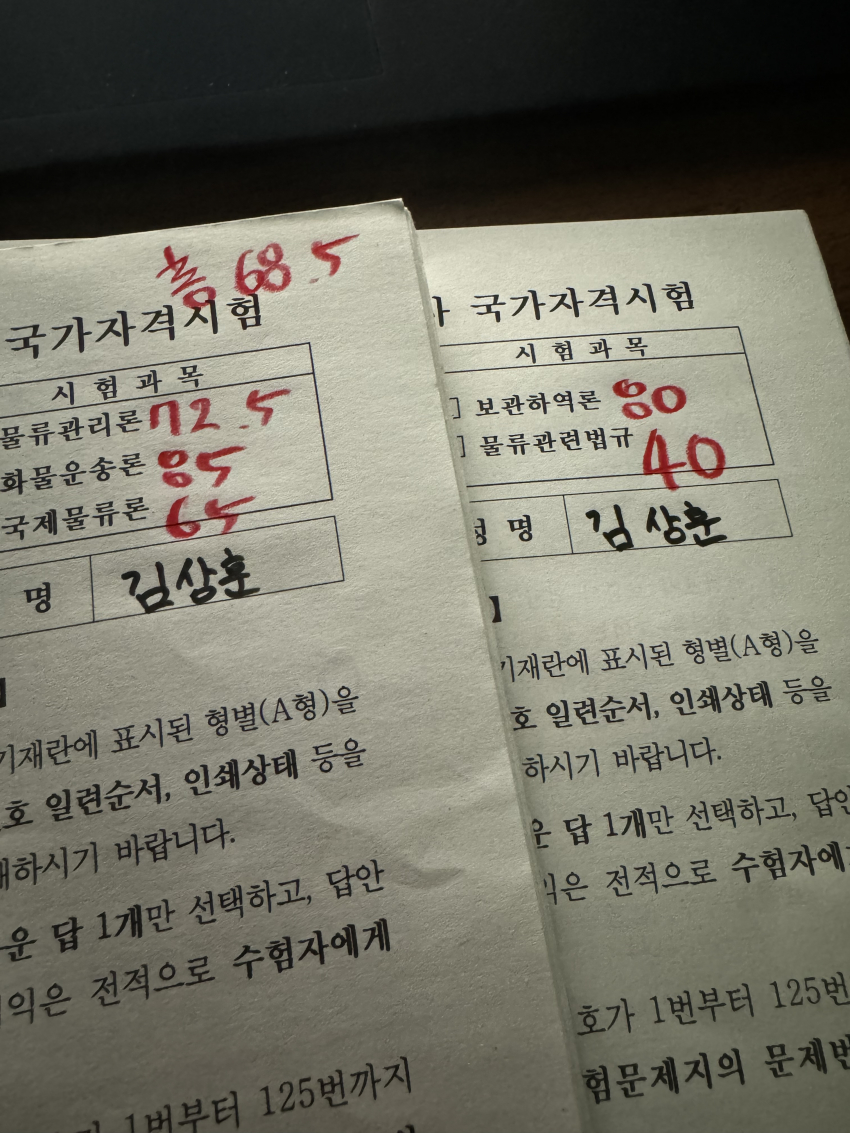 총 68.5
국가자격시험
시험과목
물류관리론 72.5
화물운송론 85
국제물류론 65
명 김상훈
】
기재란에 표시된 형별(A형)을
호 일련순서, 인쇄상태 등을
하시기 바랍니다.
운 답 1개만 선택하고, 답안
익은 전적으로 수험자에게
1번부터 125번까지
사 국가자격시험
시험과목
] 보관하역론 80
] 물류관련법규 40
성 명 김상훈
】
기재란에 표시된 형별(A형)을
호 일련순서, 인쇄상태 등을
하시기 바랍니다.
운 답 1개만 선택하고, 답안
익은 전적으로 수험자에게
호가 1번부터 125번
험문제지의 문제번